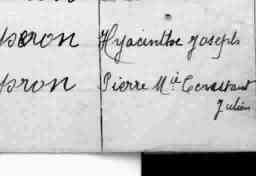 peron Hyacinthe Joseph
pron Pierre Mie Constant
Julien